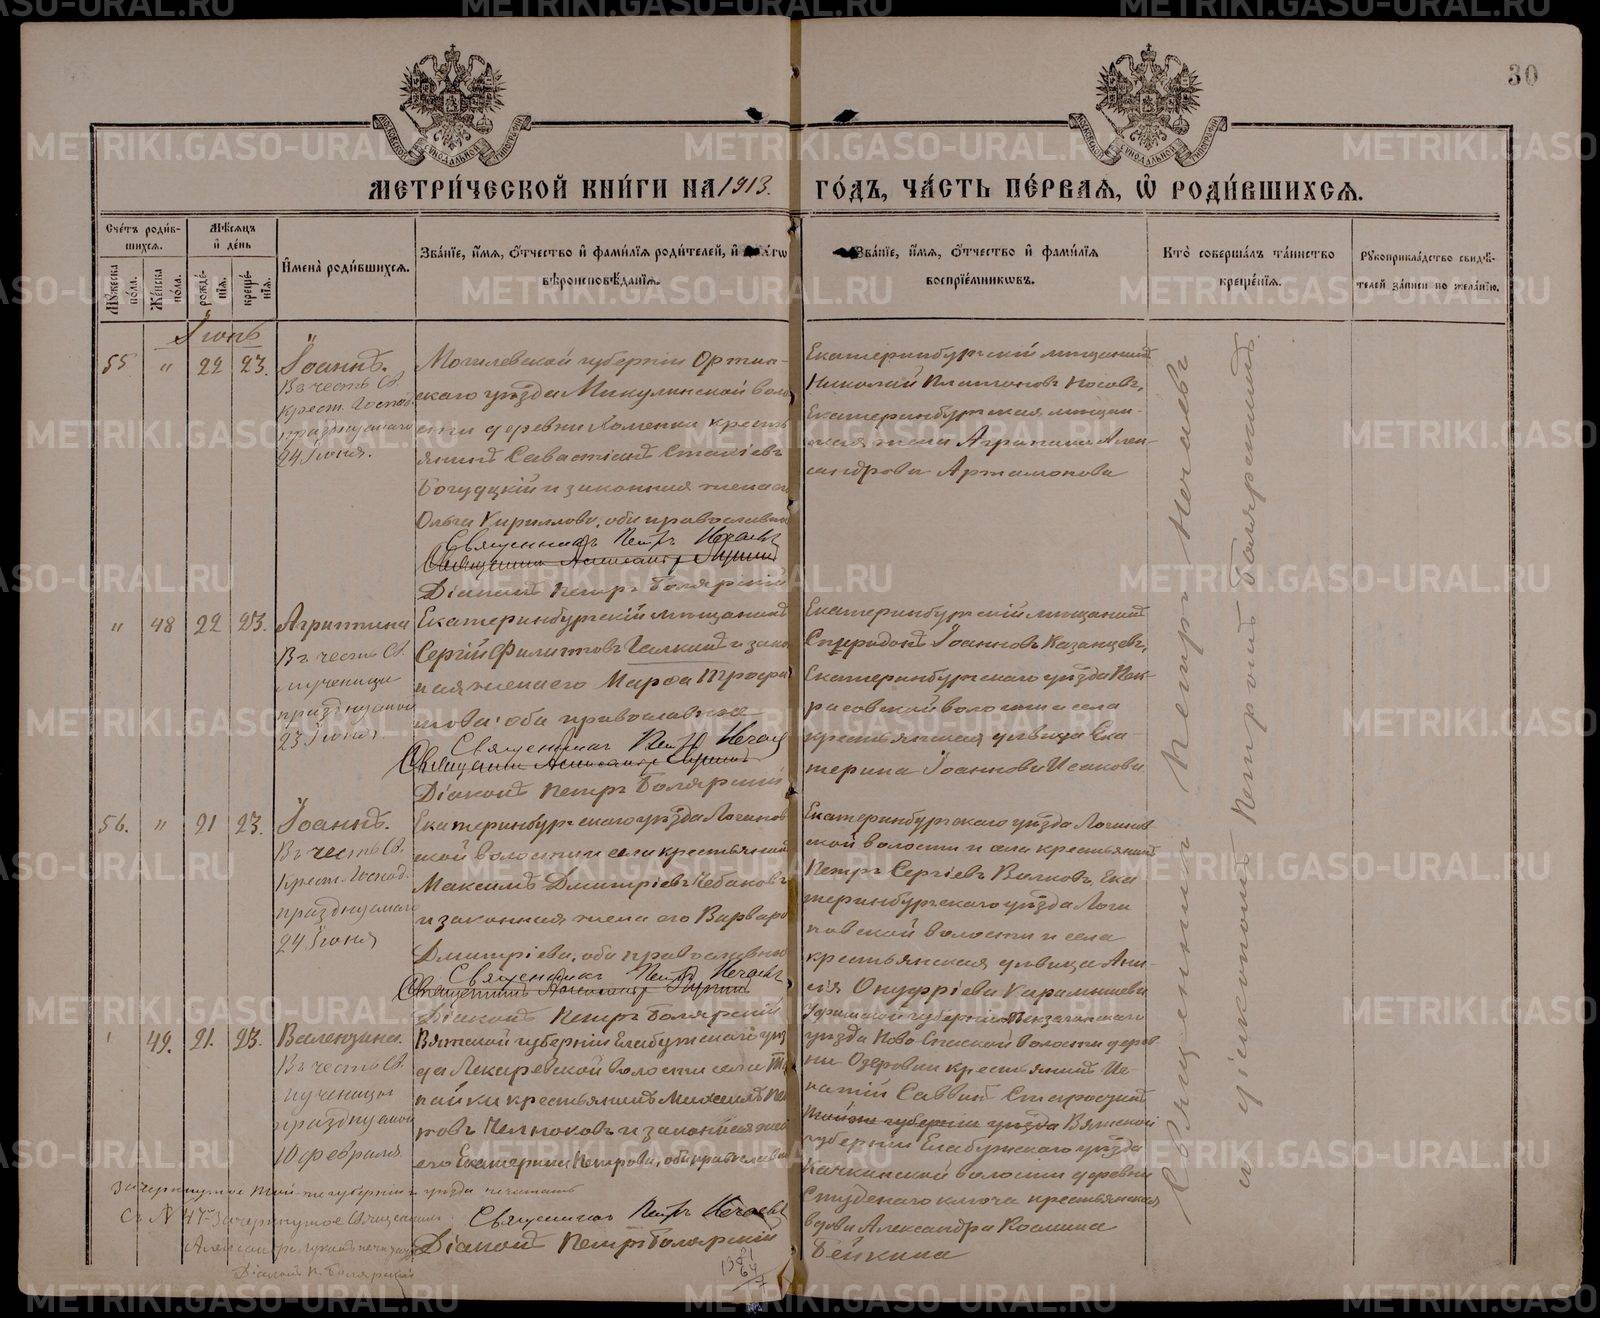 30
МЕТРИ́ЧЕСКОЙ КНИ́ГИ НА 1913. ГО́ДЪ, ЧА́СТЬ ПЕ́РВАѦ, Ѽ РОДИ́ВШИХСѦ.
Сче́тъ роди́в-
шихсѧ.
Му́жеска по́ла.
Же́нска по́ла.
Мѣ́сѧцъ и де́нь
рожде́-
нїѧ.
креще́-
нїѧ.
И́мена̀ роди́вшихсѧ.
Зва́нїе, и́мѧ, о́тчество и фами́лїѧ роди́телей, и
вѣроисповѣ́данїѧ.
Зва́нїе, и́мѧ, о́тчество и фами́лїѧ
воспрїе́мникѡвъ.
Кто̀ соверша́лъ та́инство
креще́нїѧ.
Рꙋкоприкла́дство свидѣ́-
телей за́писи по жела́нїю.
Іюнь
55 " 22 23.
Іоаннъ.
Въ честь Св.
Крест. Господ.
празднуемаго
24 Іюня.
Могилевской губерніи Орши-
скаго уѣзда Микулинской воло
сти деревни Хоменки кресть
янинъ Савастіанъ
Богуцкій и законная жена его
Ольга Кириллова, оба православны
Священникъ Петръ Нечаевъ
Діаконъ Петръ Болярскій
Екатеринбургскій мѣщанинъ
Николай Платоновъ Носовъ,
Екатеринбургская мѣщан-
ская жена Агрипина Алек-
сандрова Артамонова
" 48 22 23.
Агриппина
Въ честь Св.
мученицы
празднуемой
23 Іюня
Екатеринбургскій мѣщанинъ
Сергій Филипповъ Галкинъ и закон
ная жена его Марѳа Трофи
мова: оба православные
Священникъ Петръ Нечаев
Діаконъ Петръ Болярскій
Екатеринбургскій мѣщанинъ
Спиридонъ Іоанновъ Казанцевъ,
Екатеринбургскаго уѣзда Нек-
расовской волости и села
крестьянская дѣвица Ека-
терина Іоаннова Исакова
56. " 21 23.
Іоаннъ.
Въ честь Св.
Крест. Господ.
празднуемаго
24 Іюня
Екатеринбургскаго уѣзда Логинов
ской волости и села крестьянинъ
Максимъ Дмитріевъ Кебаковъ
и законная жена его Варвара
Дмитріева, оба православны
Священникъ Петръ Нечаевъ
Діаконъ Петръ Болярскій
Екатеринбургскаго уѣзда Логинов-
ской волости и села крестьянинъ
Петръ Сергіевъ Волковъ, Ека
теринбургскаго уѣзда Логи
новской волости и села
крестьянская дѣвица Анн-
а Онуфріева Карамышева
49. 21. 23.
Валентина.
Въ честь Св.
мученицы
празднуемой
10 февраля
Вятской губерніи Елабужскаго уѣз
да Лекаревской волости села
крестьянинъ Михаилъ Пе
тровъ и законная жена
его Екатерина Петрова, оба православны
Священникъ Петръ Нечаевъ
Діаконъ Петръ Болярскій
Уфимской губерніи
уѣзда Ново-Спаской волости дерев
ни Озеровки крестьянинъ Иг-
натій Саввинъ
губерніи уѣзда Вятской
губерніи Елабужскаго уѣзда
волости деревни
Студенаго ключа крестьянская
вдова Александра Космина
Бейкина
Священникъ Петръ Нечаевъ
и діакономъ Петромъ Болярскимъ
Діаконъ П. Болярскій